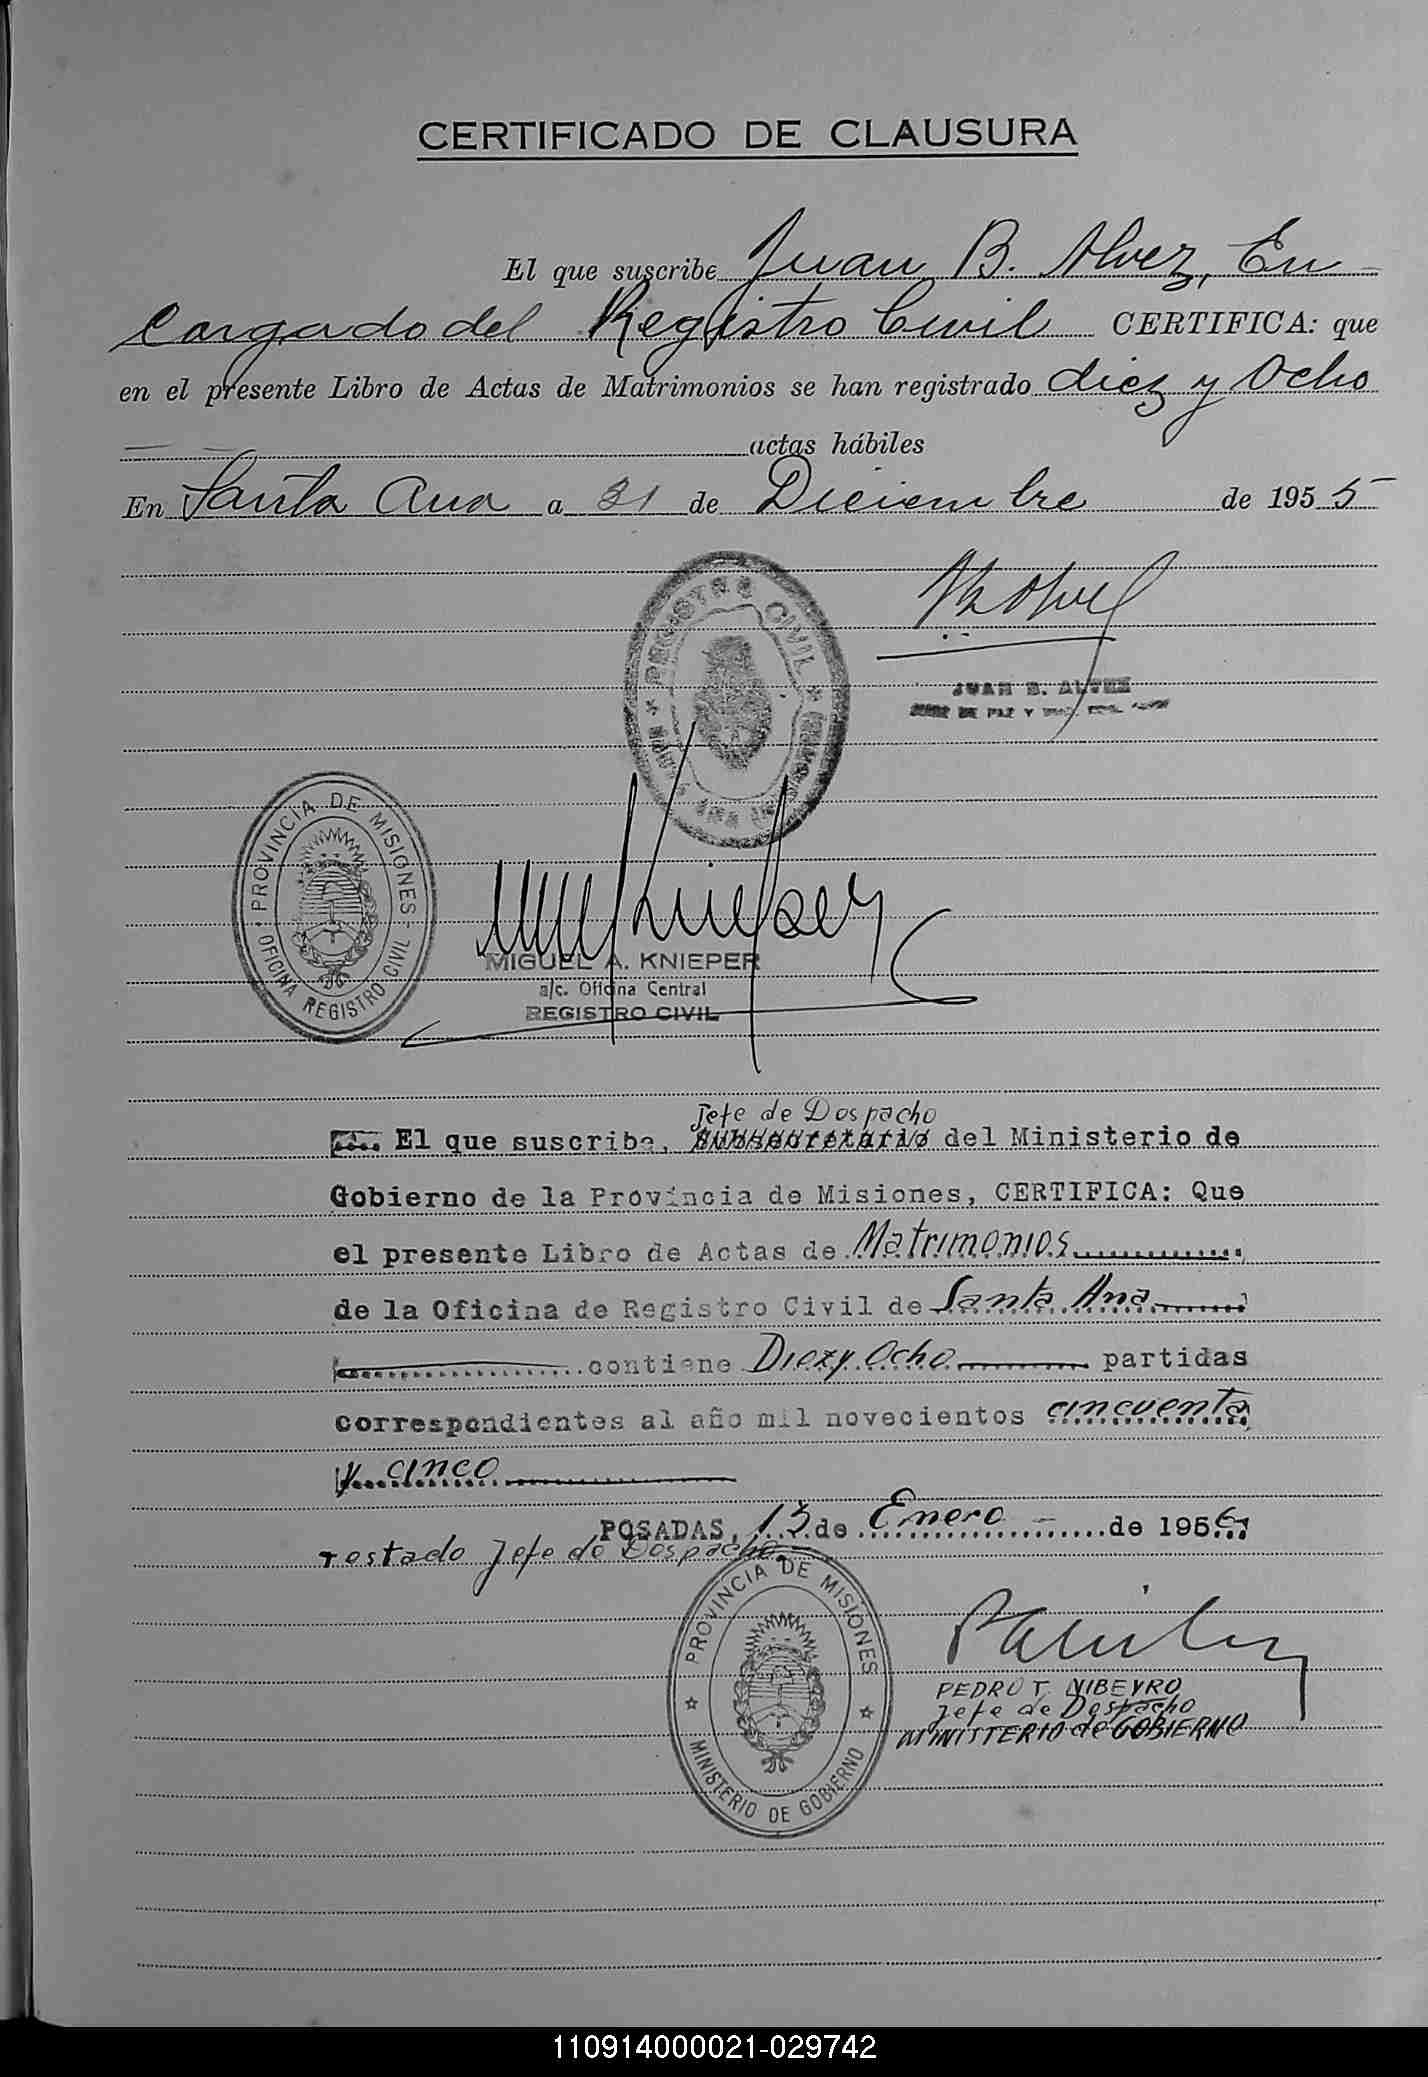 CERTIFICADO DE CLAUSURA
El que suscribe Juan B. Alvez, En
cargado del Registro Civil CERTIFICA: que
en el presente Libro de Actas de Matrimonios se han registrado diez y Ocho
actas hábiles
En Santa Ana a 31 de Diciembre de 1955
REGISTRO CIVIL
JUAN B. ALVEZ
JUEZ DE PAZ Y
PROVINCIA DE MISIONES
OFICINA REGISTRO CIVIL
MIGUEL A. KNIEPER
a/c. Oficina Central
REGISTRO CIVIL
Jefe de Despacho
El que suscribe, Subsecretario del Ministerio de
Gobierno de la Provincia de Misiones, CERTIFICA: Que
el presente Libro de Actas de Matrimonios
de la Oficina de Registro Civil de Santa Ana
contiene Diez y Ocho partidas
correspondientes al año mil novecientos cincuenta
y cinco
POSADAS, 13 de Enero de 1956
Testado Jefe de Despacho
PROVINCIA DE MISIONES
MINISTERIO DE GOBIERNO
PEDRO T. NIBEYRO
Jefe de Despacho
MINISTERIO de GOBIERNO
110914000021-029742